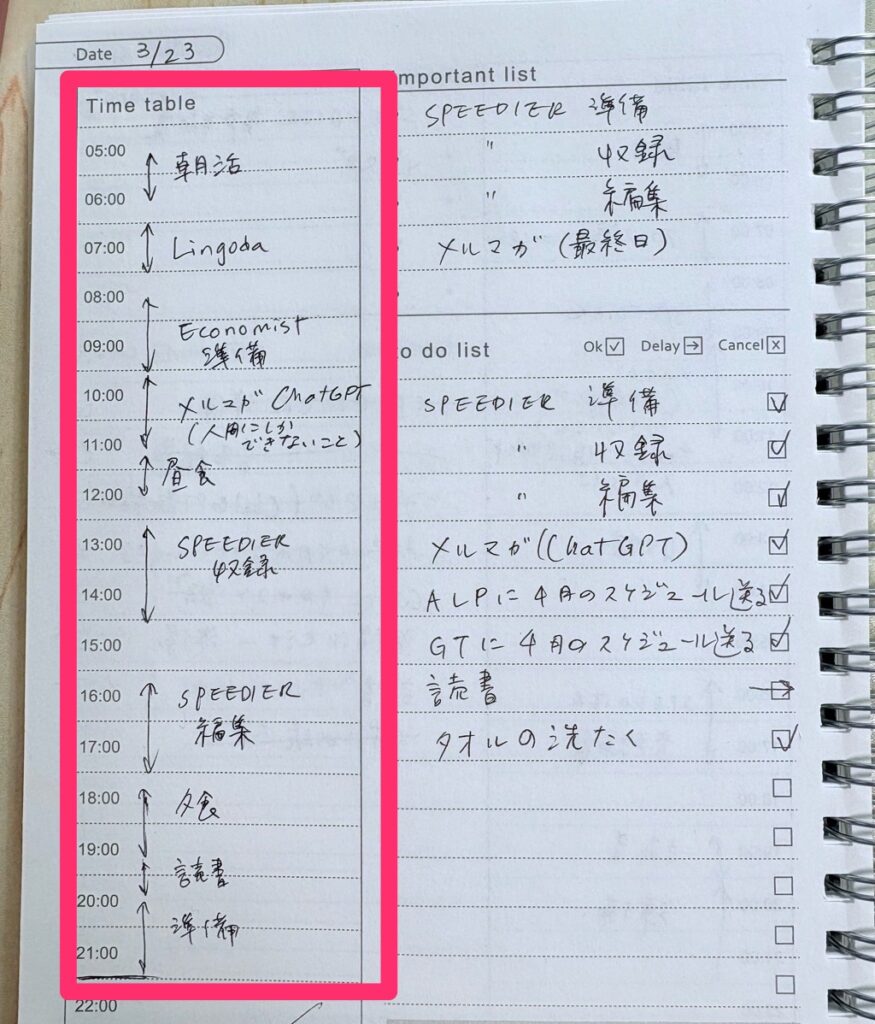 Date 3/23
Time table
05:00
朝活
06:00
07:00
Lingoda
08:00
Economist
09:00
準備
10:00
メルマガ ChatGPT
(人間にしか
11:00
できないこと)
昼食
12:00
13:00
SPEEDIER
収録
14:00
15:00
16:00
SPEEDIER
編集
17:00
18:00
夕食
19:00
読書
20:00
準備
21:00
22:00
mportant list
SPEEDIER 準備
〃 収録
〃 編集
メルマガ (最終日)
to do list Ok Delay Cancel
SPEEDIER 準備
〃 収録
〃 編集
メルマガ (ChatGPT)
ALPに4月のスケジュール送る
GTに4月のスケジュール送る
読書
タオルの洗たく